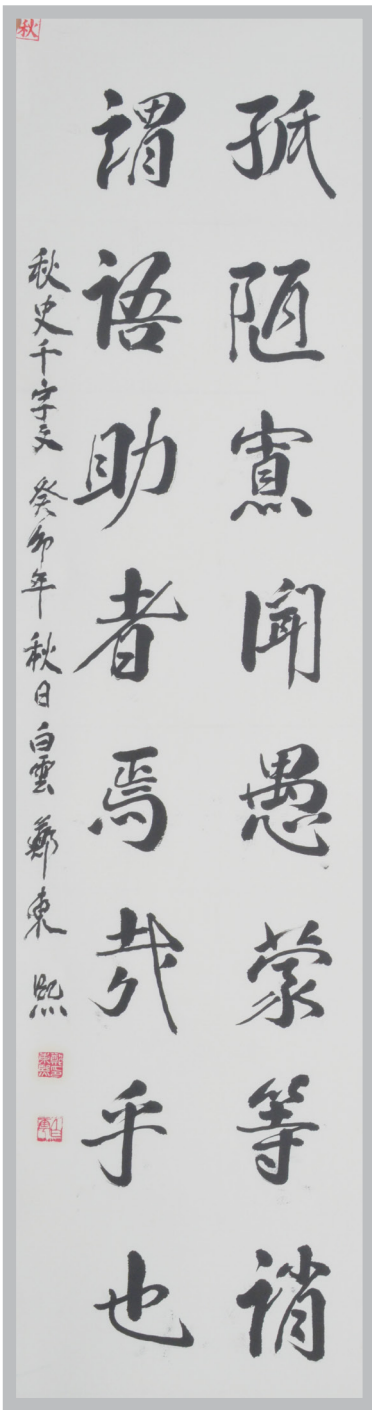 孤陋寡聞愚蒙等誚
謂語助者焉哉乎也
秋史千字文 癸卯年 秋日 白雲 鄭東熙
秋